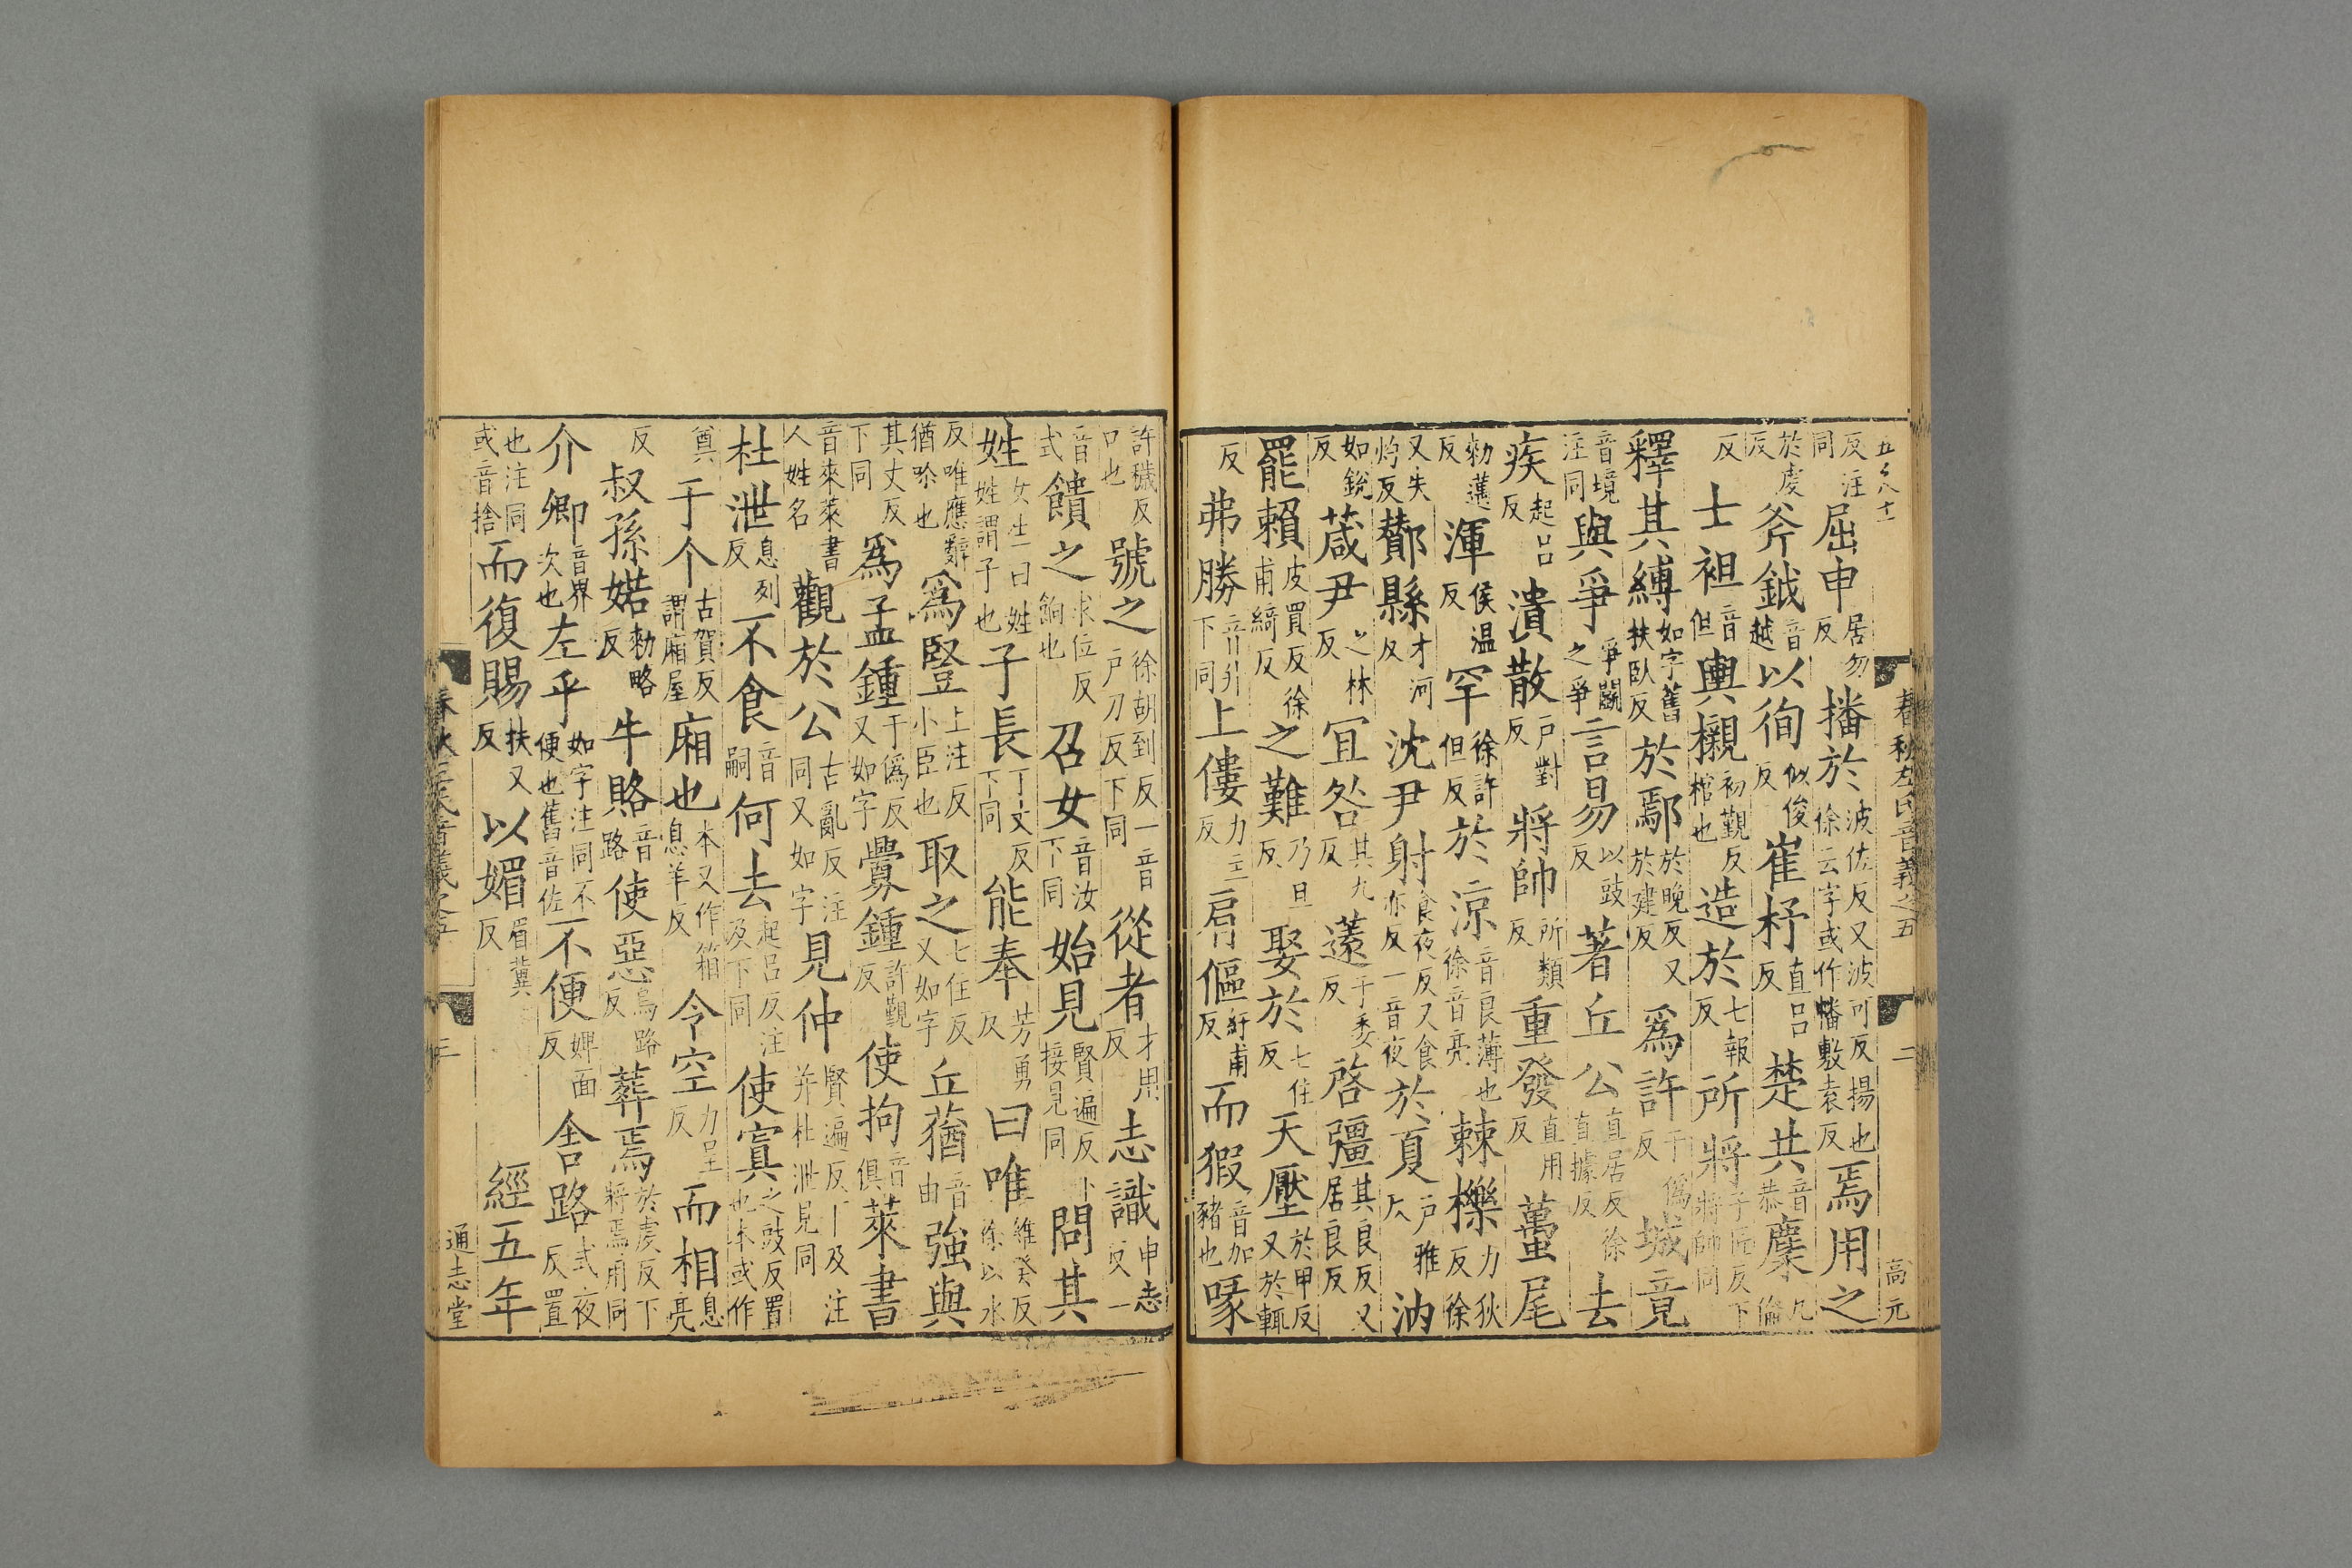 五六八十 春秋左氏音義之五 二 高元
反注同屈申居勿反播於波佐反又波可反揚也徐云字或作幡敷袁反焉用之
於虔反斧鉞音越以徇似俊反崔杼直呂反楚共音恭麇九倫
反士袒音但輿櫬初覲反棺也造於七報反所將子匠反下將帥同
釋其縛如字舊扶臥反於鄢於晚反又於建反爲許于僞反城竟
音境注同與爭爭鬭之爭言易以豉反著丘公直居反徐直據反去
疾起呂反潰散戶對反將帥所類反重發直用反蠆尾
勑邁反渾侯温反罕徐許但反於涼音良薄也徐音亮棘櫟力狄反徐
又失灼反酇縣才河反沈尹射食夜反又食亦反一音夜於夏戶雅反汭
如銳反葴尹之林反宜咎其九反薳于委反啓彊其良反又居良反
罷賴皮買反徐甫綺反之難乃旦反娶於七住反天壓於甲反又於輒
反弗勝音升下同上僂力主反肩傴紆甫反而猳音加豬也喙
許穢反口也號之徐胡到反一音戶刀反下同從者才用反志識申志反一
音式饋之求位反餉也召女音汝下同始見賢遍反下接見同問其
姓女生曰姓姓謂子也子長丁丈反下同能奉芳勇反曰唯維癸反徐以水
反唯應辭猶喭也爲豎上注反小臣也取之七住反又如字丘蕕音由強與
其丈反下同爲孟鍾于僞反又如字釁鍾許覲反使拘音俱萊書
音來萊書人姓名觀於公古亂反注同又如字見仲賢遍反下及注并杜泄見同
杜泄息列反不食音嗣何去起呂反注及下同使寘之豉反置也本或作
奠于个古賀反謂廂屋廂也本又作箱息羊反令空力呈反而相息亮
反叔孫婼勑略反牛賂音路使惡烏路反葬焉於虔反下將焉用同
介卿音界次也左乎如字注同不便也舊音佐不便婢面反舍路式夜反置
也注同或音捨而復賜扶又反以媚眉冀反經五年
三 通志堂